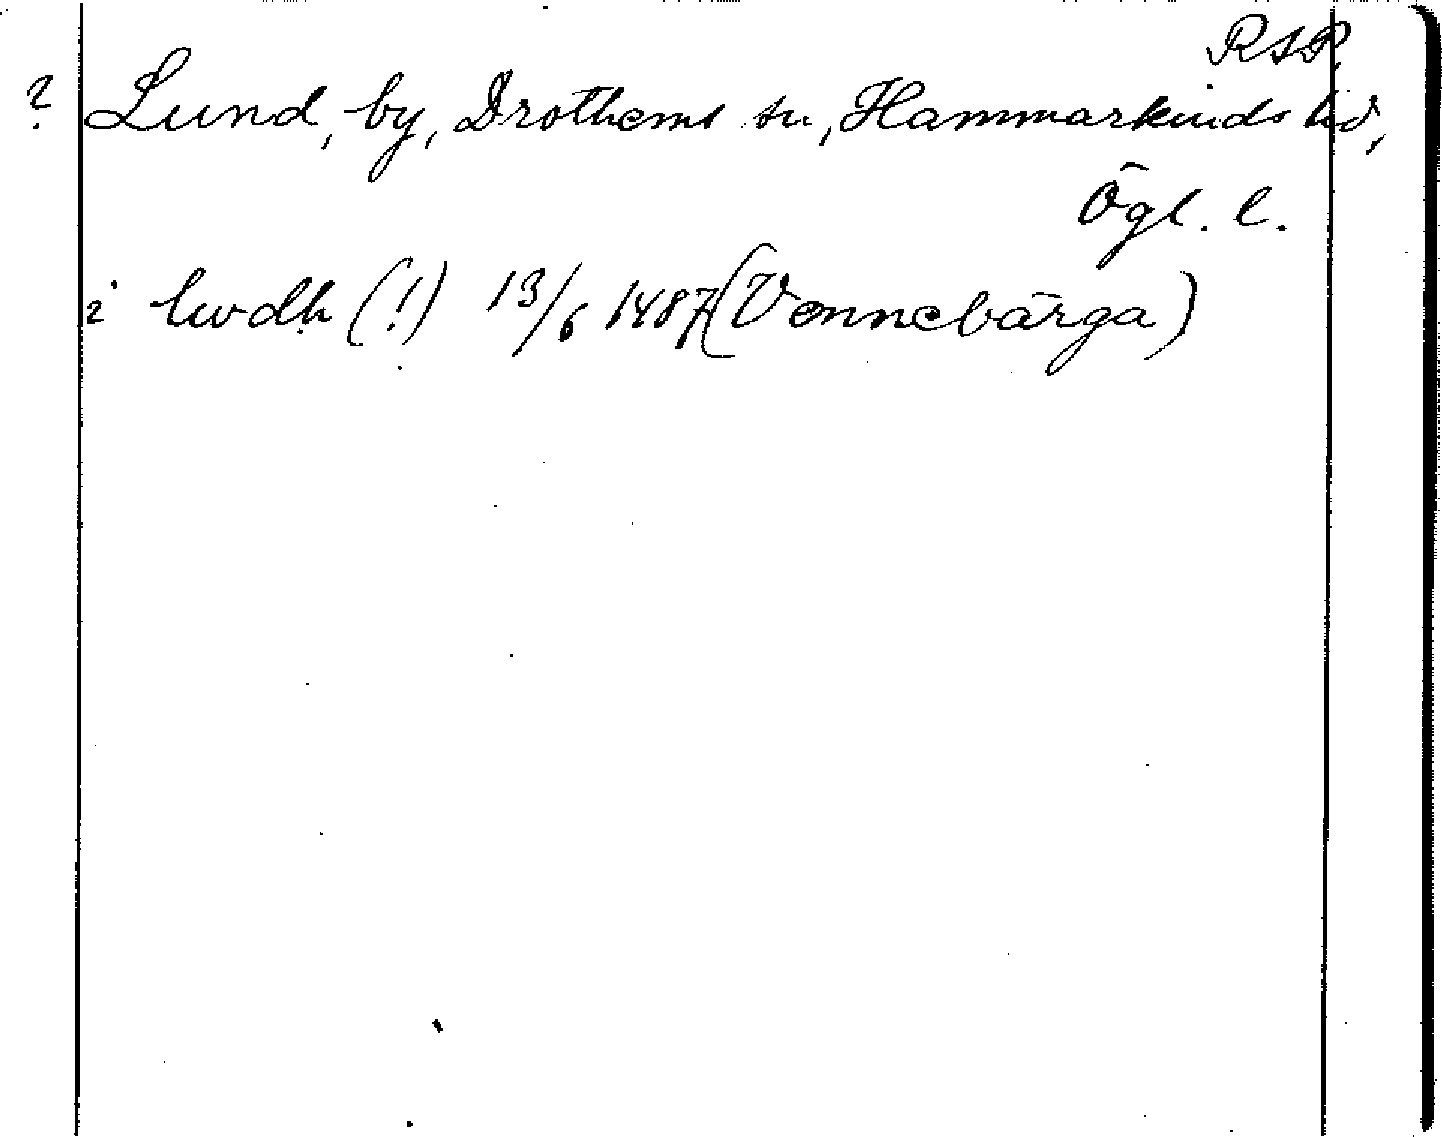 RAP.
? Lund, by, Drothems sn, Hammarkinds hd,
Ögl. l.
i lwdh (!) 13/6 1487 (Vennebärga)